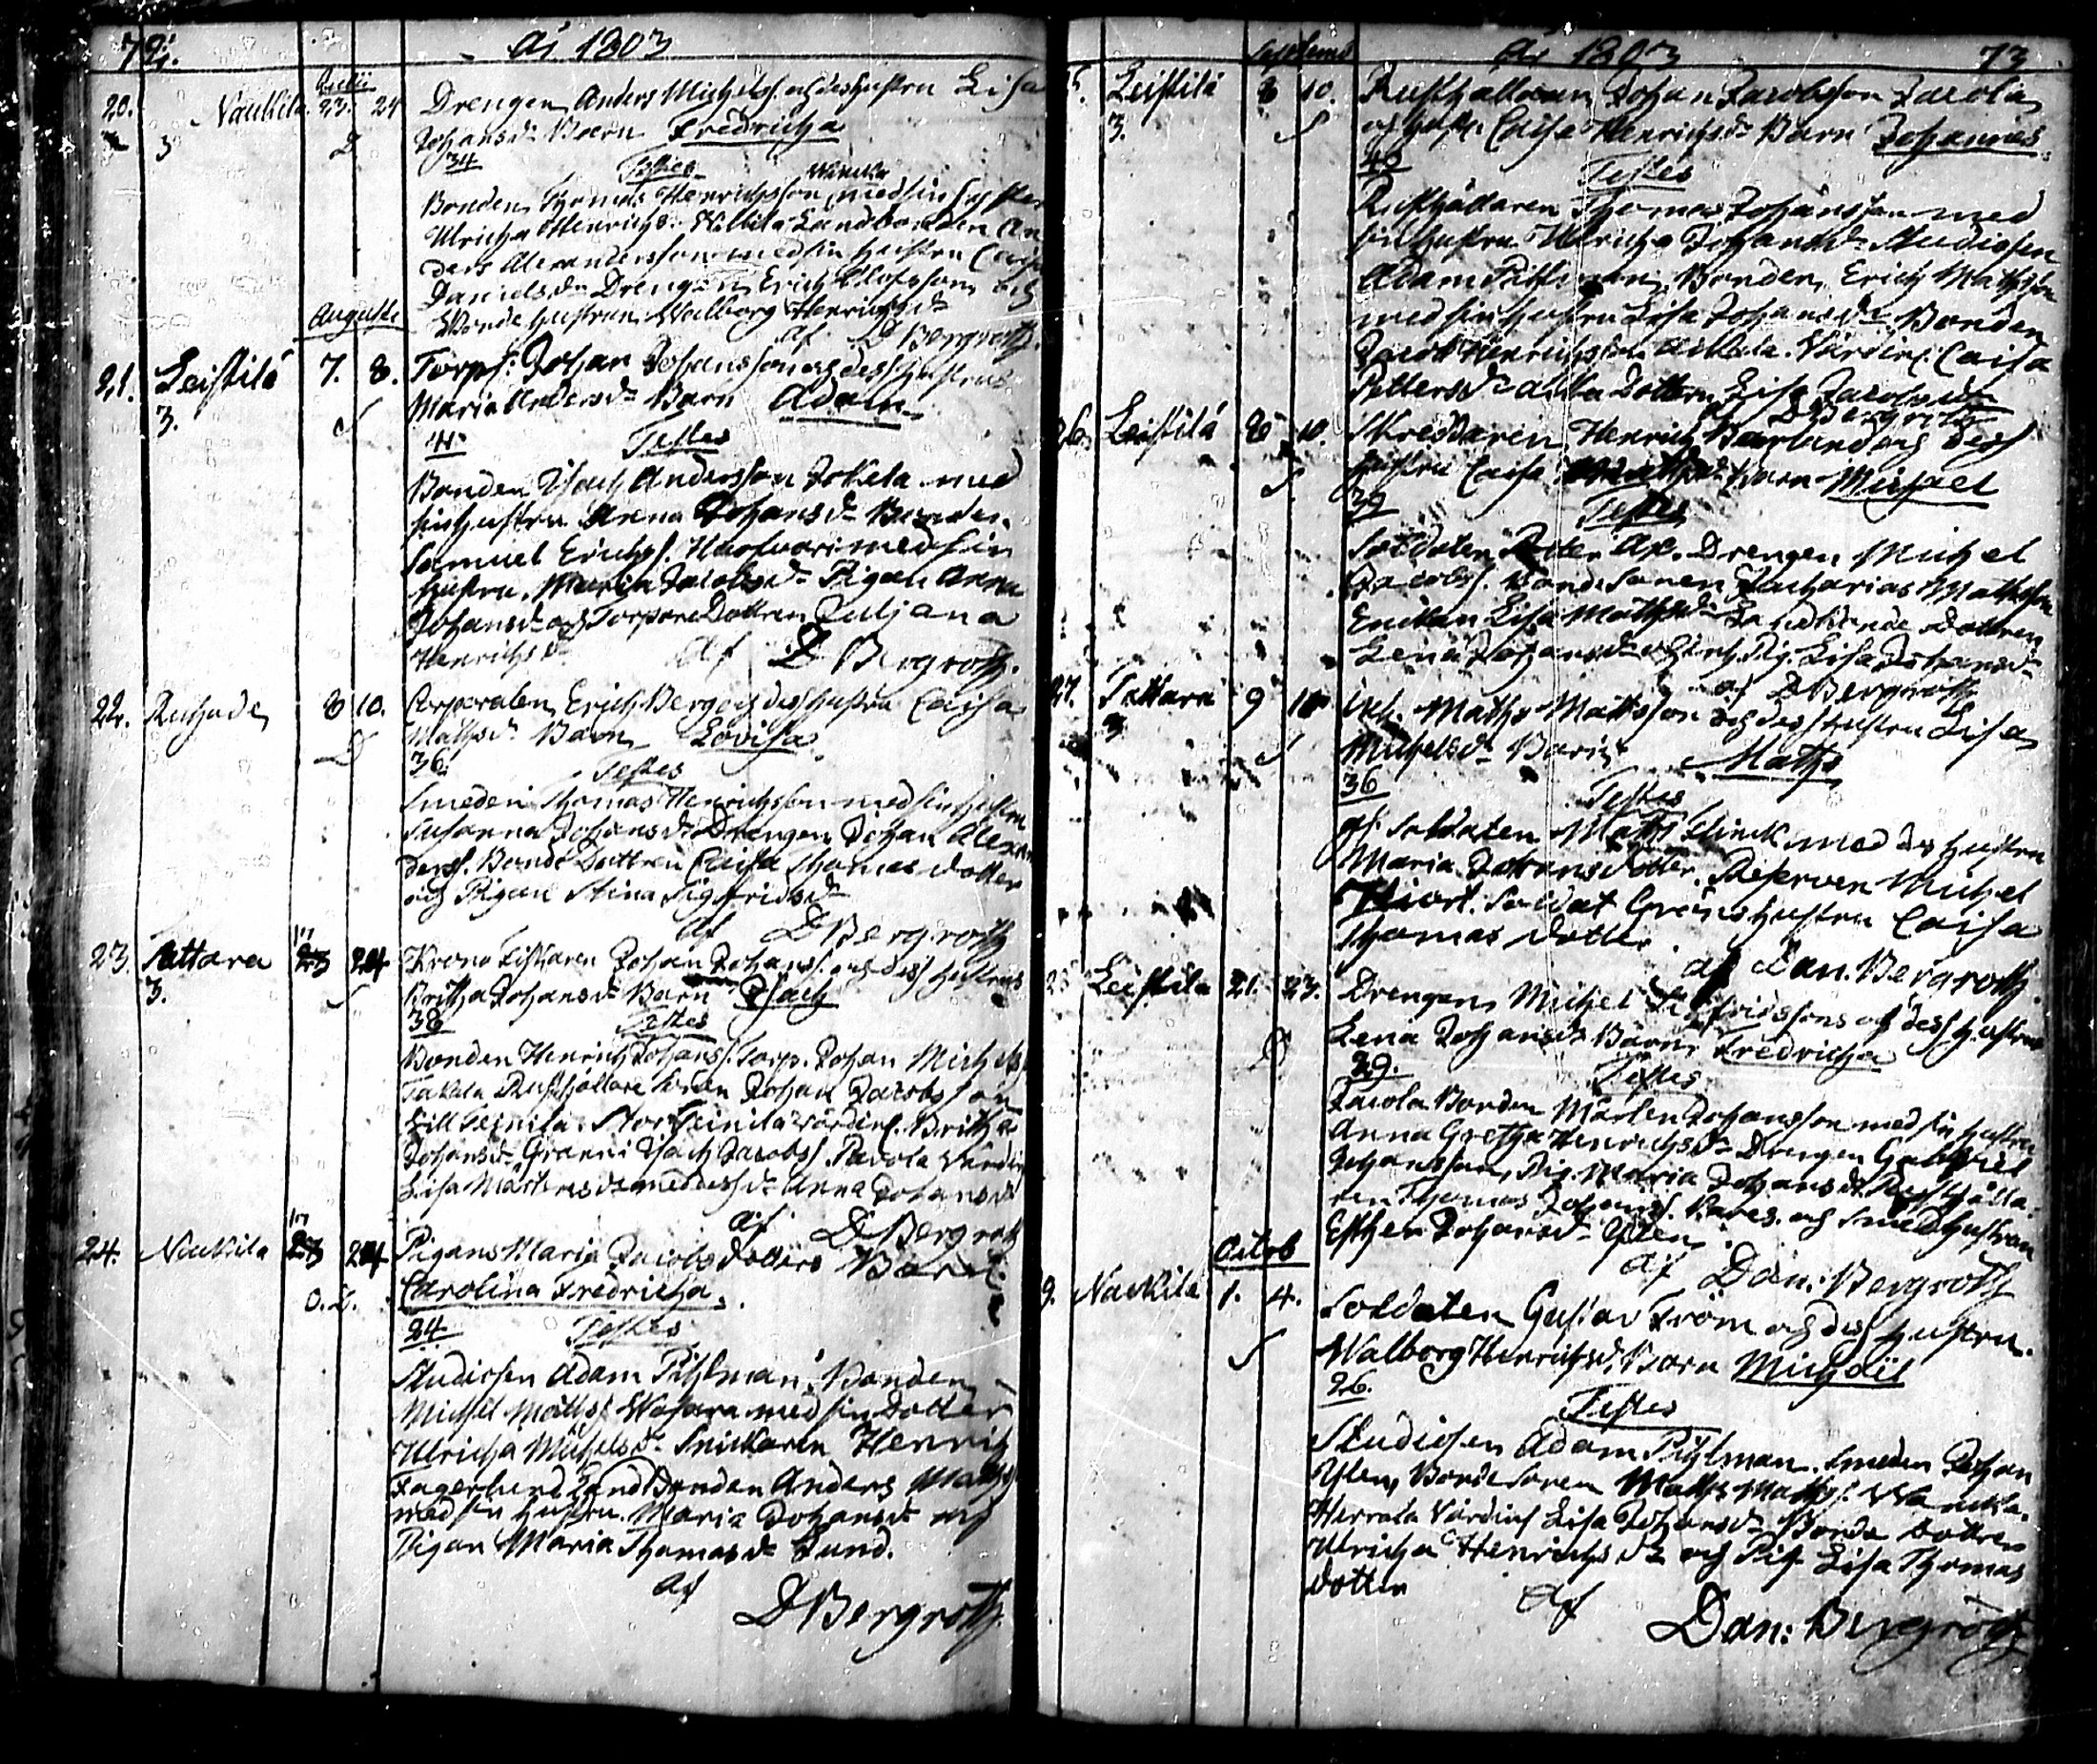 72. Ao 1803
Julii
20. Naukila. 23. 24 Drengen Anders Michelss. och dess hustru Lisa
3 D Johansdr Barn Fredricha
34 Testes
Bonden Thomas Henricsson med sin syster
Ulricha Henrichsdr Landbonden An
ders Alexandersson med sin hustru Caisa
Daniels dr Drengen Erich Olofsson och
Bonde hustrun Walborg Henrichsdr
Augusti af D Bergroth.
21. Leistilä 7. 8. Torp: Johan Johansson och dess hustrus
3. Maria Andersdr Barn Adam
41 Testes
Bonden Isach Andersson Jokela med
sin hustru Anna Johansdr Bonden
Samuel Erichss. med sin
hustru. Maria Jacobsdr Pigan Anna
Johansdr och Torpare Dottren Juljana
Henrichsdr af D Bergroth.
22. 8 10. Corporalen Erich Berg och dess hustru Caisa
D Mathsdr Barn Lovisa.
36. Testes
Smeden Thomas Henrichsson med sin hustru
Susanna Johansdr Drengen Johan Alexan
derss. Bonde Dottren Caisa Thomas dotter
och Pigan Stina Sigfridsdr
af D Bergroth
23. Tattara 23 24 Krono Fiskaren Johan Johanss. och dess hustrus
3. Britha Johansdr Barn Isach
38 Testes
Bonden Henrich Johanss. Torp. Johan Michelss
Takala Rusthållare Sonen Johan Jacobsson
Lill Teinilä. Stor Teinilä Värdin. Britha
Johansdr Granni Isach Jacobss. Pavola Värdin
Lisa Mårtensdr med dess dr Anna Johansdr
af D Bergroth
24. Naukila 23 24 Pigans Maria Jacobs dotters Barn
O. D. Carolina Fredricha.
24 Testes
Studiosen Adam Pihlman. Bonden
Michel Mattss. Wasara med sin Dotter
Ulricha Michelsdr Snickaren Henrich
Fagerlund Landbonden Anders Mathss
med sin hustru. Maria Johansdr och
Pigan Maria Thomasdr Lund.
af
D Bergroth.
Septemb Ao 1803 73
Leistilä 8 10. Rusthållaren Johan Jacobsson Jacola
3. och hustr Caisa Henrichsdr Barn Johannes.
42 Testes
Rusthållaren Thomas Johansson med
sin hustru Ulricha Johansdr Studiosen
Adam Pihlman. Bonden Erich Mathsson
med sin hustru Lisa Johansdr Bonden
Jacob Henrichsson Värdin: Caisa
Pettersdr Dottern Lisa Jacobsdr
D Bergroth
26. Leistilä 8 10. Skreddaren Henrich och dess
hustru Caisa Barn Michael
39 Testes
Soldaten Petter Ax. Drengen Michel
Jacobss. Bonde Sonen Zacharias Mathsson
Enckan Lisa Mathsdr Landbonde Dottren
Lena Johansdr och Pig. Lisa Johansdr
af D Bergroth
27. Tattara 9 10 Maths Mattsson och dess hustru Lisa
3 Michelsdr Barn Maths
36 Testes
Soldaten Maths med dess hustru
Maria Johansdotter. Reserven Michel
Hiort. Soldat hustru Caisa
Thomas dotter.
af Dan. Bergroth.
Leistilä 21. 23. Drengens Michel Sigfridssons och dess hustrus
D Lena Johansdr Barn Fredricha
29. Testes
Jacola Bonden Mårten Johansson med sin hustru
Anna Gretha Henrichsdr Drengen Gabriel
Johansson, Pig. Maria Johansdr Rusthålla-
ren Thomas Johanss. och Smedhustrun
Esther Johansdr Ylen.
Octob af Dan: Bergroth
9. Naukila 1. 4. Soldaten Gustav Ström och dess hustru.
Walborg Henrichsdr Barn Michael
26. Testes
Studiosen Adam Pihlman. Smeden Johan
Ylen, Bonde Sonen Maths Mathss.
Herrala Värdin Lisa Johansdr Bonde Dottren
Ulricha Henrichsdr och Pig Lisa Thomas
dotter af
Dan: Bergroth